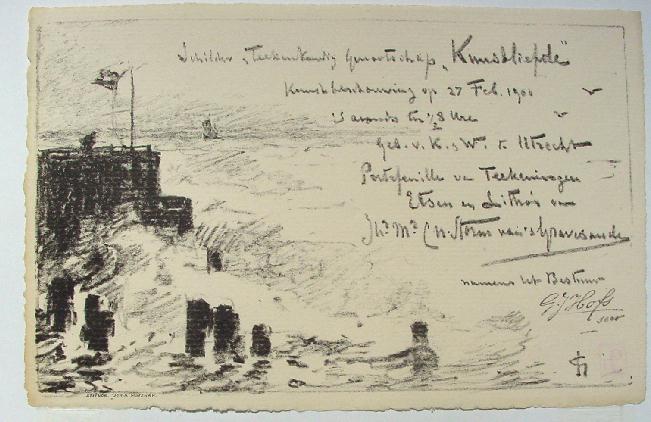 Schilder & Teekenkundig Genootschap „Kunstliefde"
Kunstbeschouwing op 27 Feb. 1900
's avonds ten ½8 Ure
Geb. v. K. & W. te Utrecht
Portefeuille van Teekeningen
Etsen en Litho's van
Jhr Mr C. N. Storm van 's Gravesande
namens het Bestuur
G J Hofs
secr